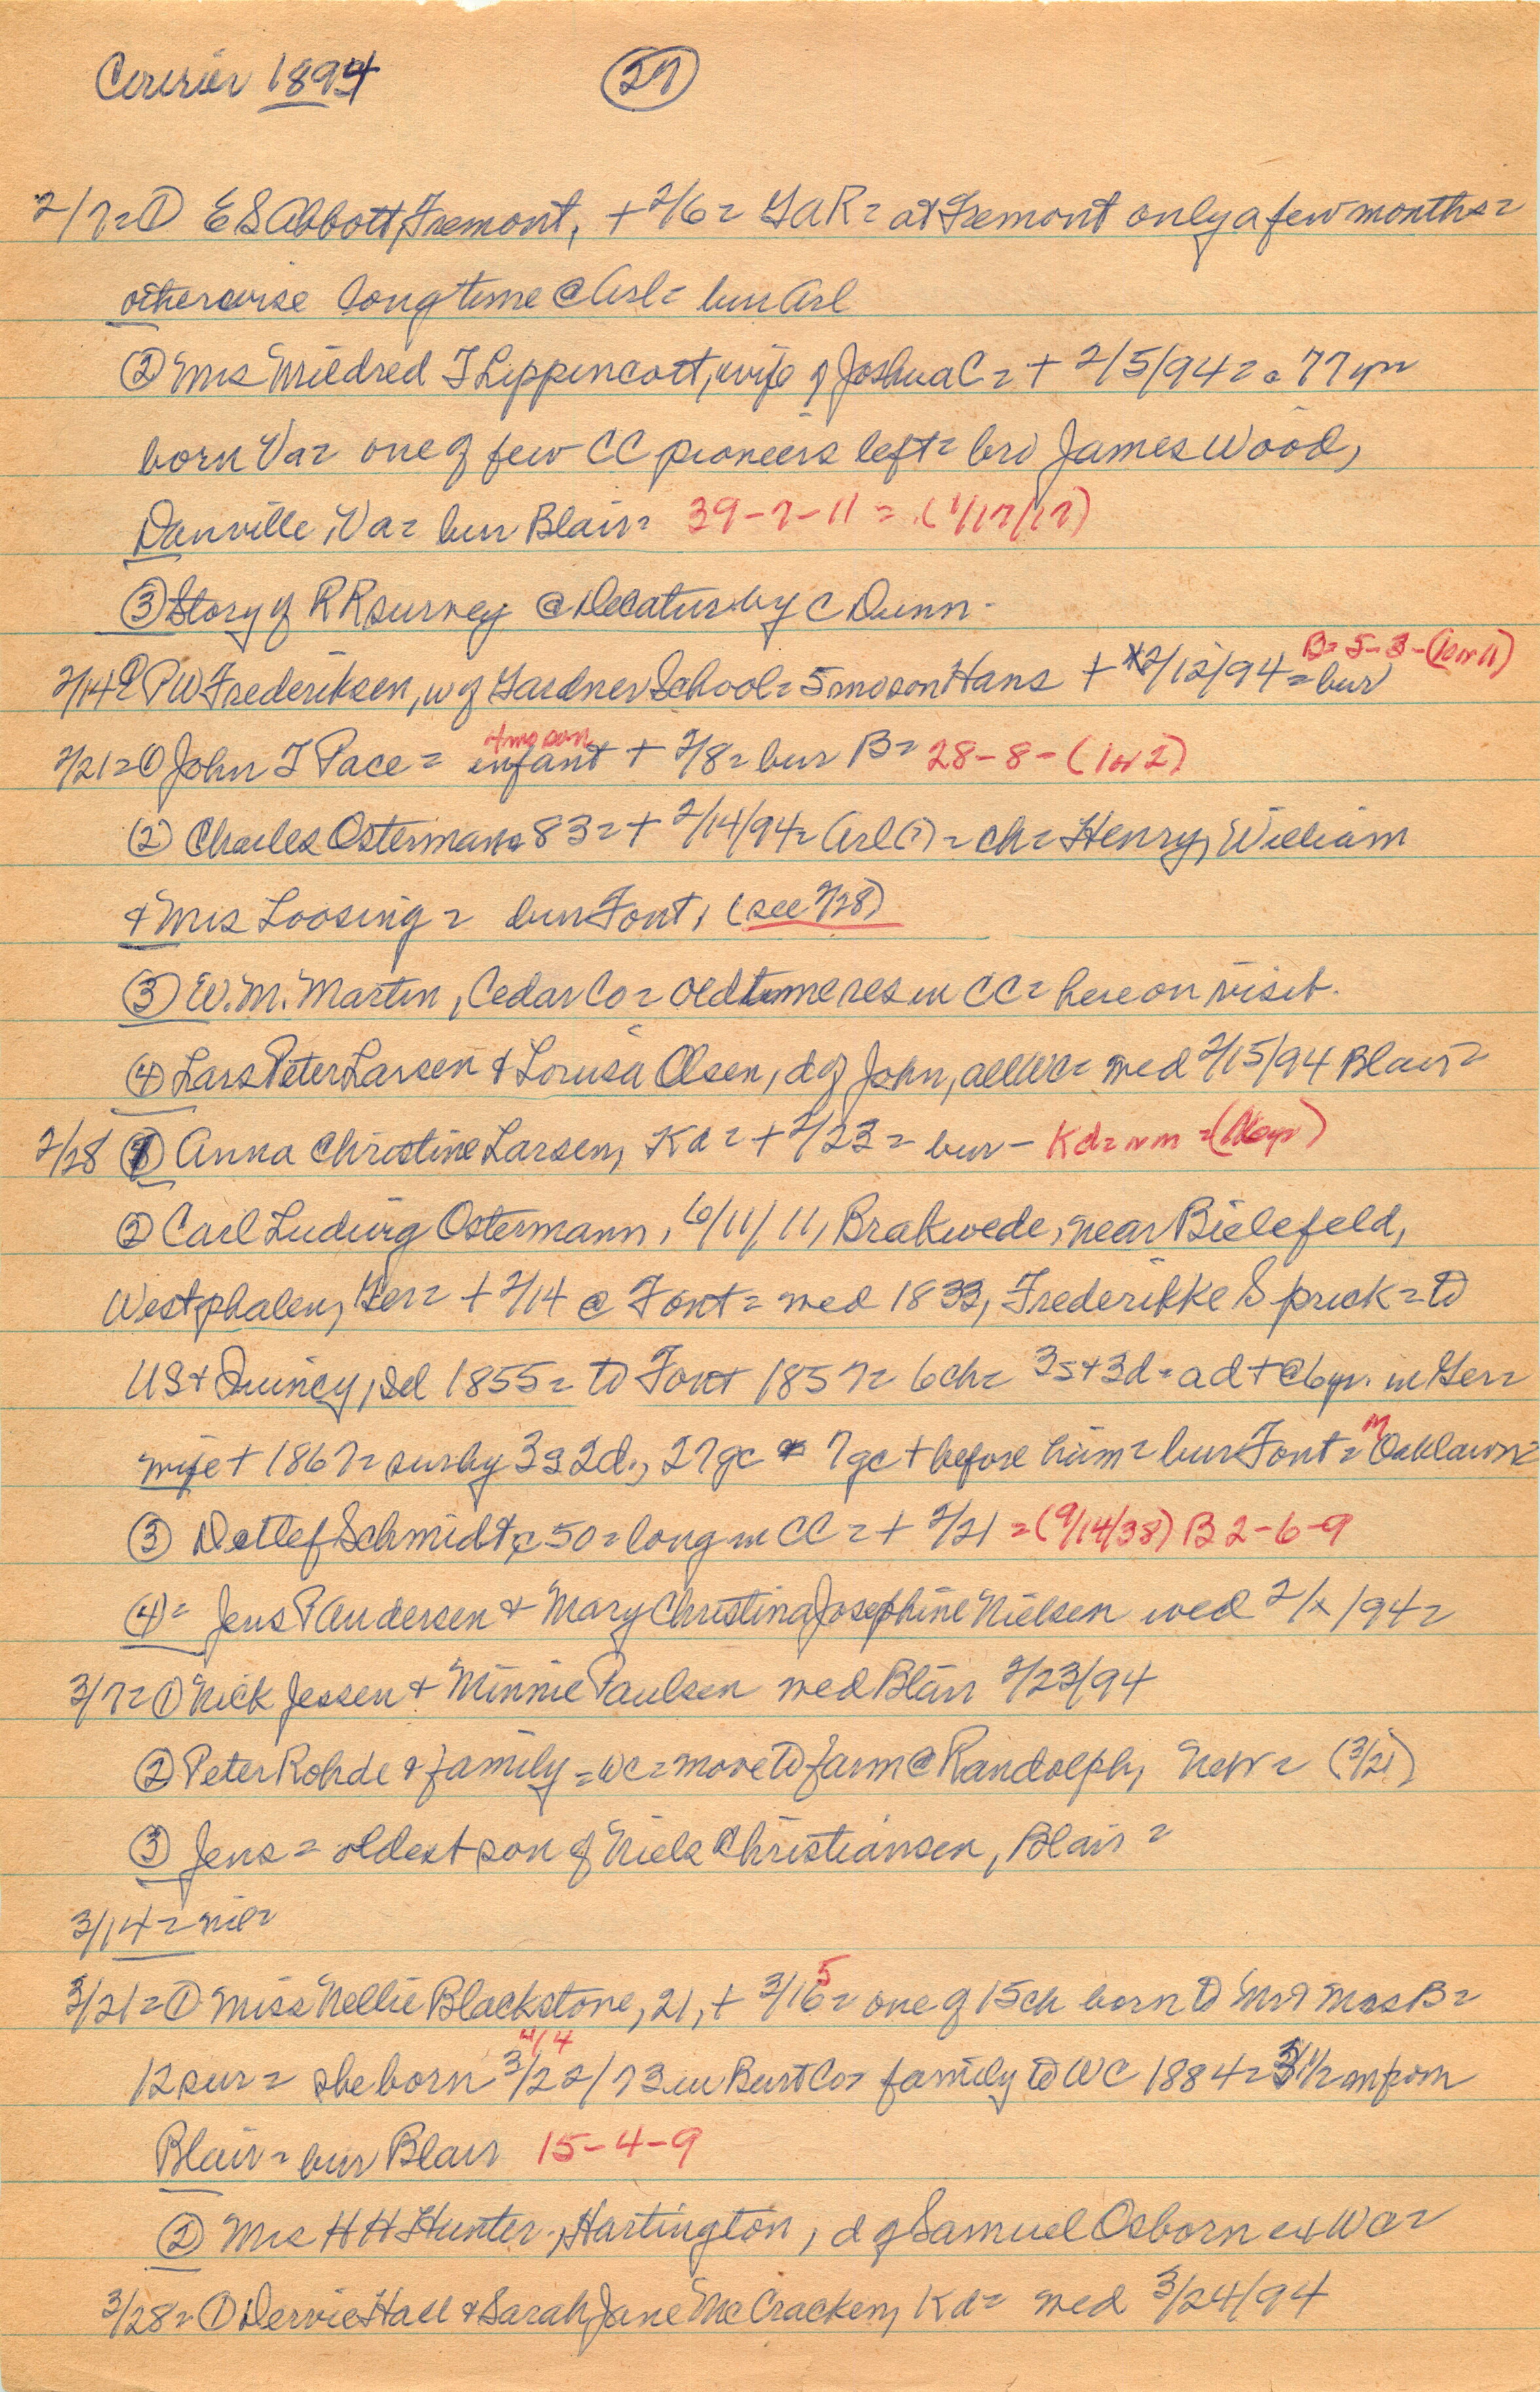 Courier 1894 (27)
2/7= ① E S Abbott, Fremont, + 2/6= GaR= at Fremont only a few months=
otherwise long time @ Arl= bur Arl
② Mrs Mildred T Lippencott, wife of Joshua C= + 2/5/94= a 77 yr=
born Va= one of few CC pioneers left= bro James Wood,
Danville, Va= bur Blair= 39-7-11= (1/17/17)
③ Story of RR survey @ Decatur by C Dunn-
B= 5-3-(10 or 11)
2/14= P W Frederiksen, w of Gardner School= 5 mo son Hans + 2/12/94= bur
4 mo son
2/21= ① John T Pace= infant + 2/8= bur B= 28-8-(1 or 2)
② Charles Ostermann 83= + 2/14/94= Arl(?)= ch= Henry, William
& Mrs Loosing= bur Font, (see 2/28)
③ W. M. Martin, Cedar Co= old time res in CC= here on visit.
④ Lars Peter Larsen & Louisa Olsen, d of John, all WC= med 2/15/94 Blair=
2/28 ① Anna Christine Larsen, Kd= + 2/23= bur- Kd= nm= (16yr)
② Carl Ludwig Ostermann, 6/11/11, Brakwede, near Bielefeld,
Westphalen, Ger= + 2/14 @ Font= med 1833, Frederikke Sprick= to
US & Quincy, Ill 1855= to Font 1857= 6 ch= 3s + 3d= a d + @ 6 yr. in Ger=
M
wife + 1867= sur by 3s 2d., 27 gc & 7 gc + before him= bur Font= Oaklawn=
③ Detlef Schmidt, c 50= long in CC= + 2/21 = (9/14/38) B 2-6-9
④= Jens P Andersen & Mary Christina Josephine Nielsen wed 2/x/94=
3/7= ① Nick Jessen & Minnie Paulsen med Blair 2/23/94
② Peter Rohde & family= WC= move to farm @ Randolph, Nebr= (3/21)
③ Jens= oldest son of Niels Christiansen, Blair=
3/14= nil=
5
3/21= ① Miss Nellie Blackstone, 21, + 3/16= one of 15 ch born to Mr & Mrs B=
4/4
12 sur= she born 3/22/73 in Burt Co= family to WC 1884= 3 1/2 m from
Blair= bur Blair 15-4-9
② Mrs H H Hunter, Hartington, d of Samuel Osborn ex WC=
3/28= ① Dervie Hall & Sarah Jane McCracken, Kd= med 3/24/94